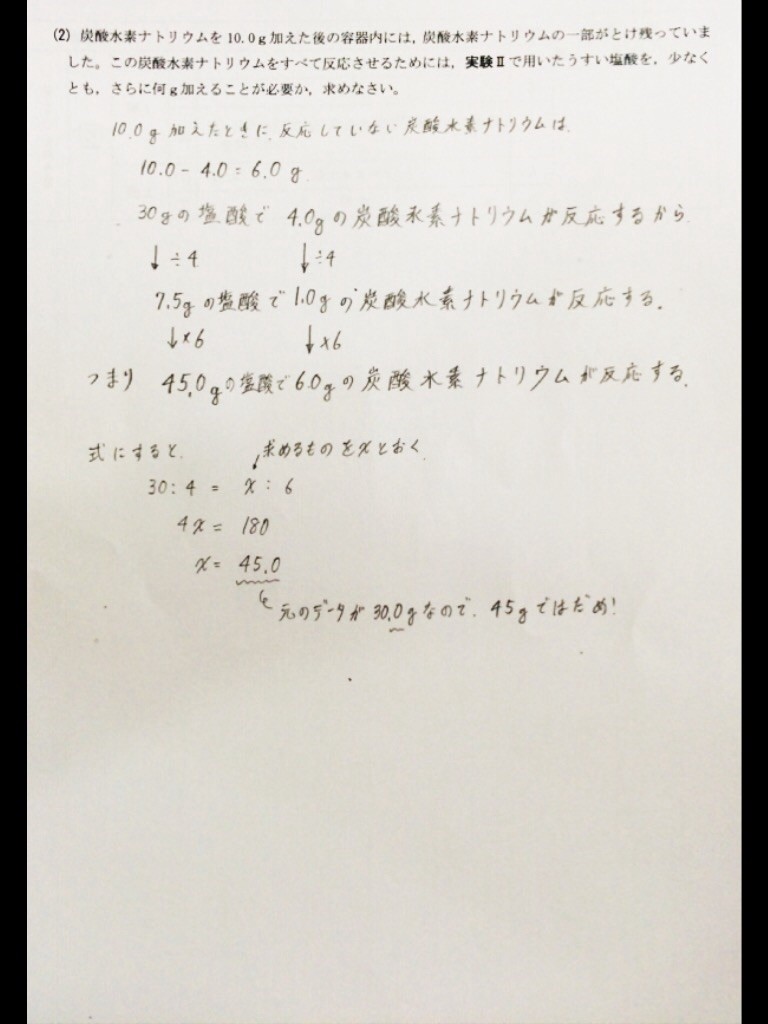 (2) 炭酸水素ナトリウムを10.0g加えた後の容器内には,炭酸水素ナトリウムの一部がとけ残っていま
した。この炭酸水素ナトリウムをすべて反応させるためには,実験Ⅱで用いたうすい塩酸を,少なく
とも,さらに何g加えることが必要か,求めなさい。
10.0g加えたときに、反応していない炭酸水素ナトリウムは、
10.0-4.0=6.0g
30gの塩酸で 4.0gの炭酸水素ナトリウムが反応するから
↓÷4 ↓÷4
7.5gの塩酸で1.0gの炭酸水素ナトリウムが反応する。
↓×6 ↓×6
つまり 45.0gの塩酸で6.0gの炭酸水素ナトリウムが反応する。
式にすると、 求めるものをxとおく。
30:4 = x:6
4x = 180
x = 45.0
元のデータが30.0gなので、45gではだめ!